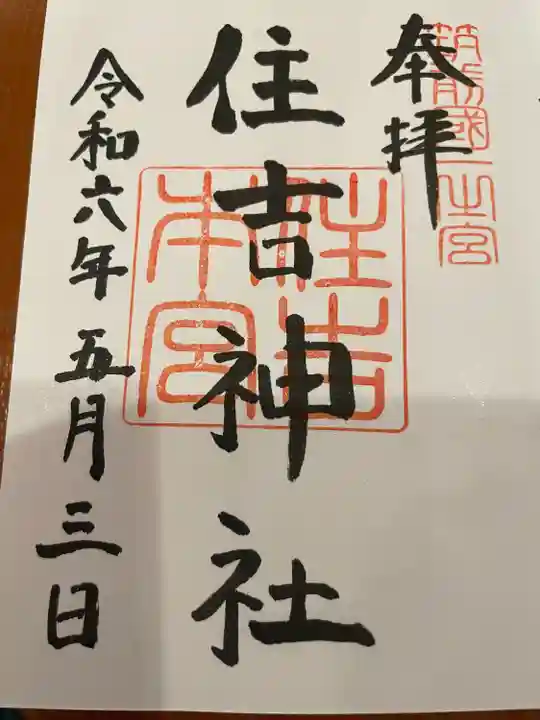 奉拝
筑前國一之宮
住吉神社
住吉本宮
令和六年五月三日